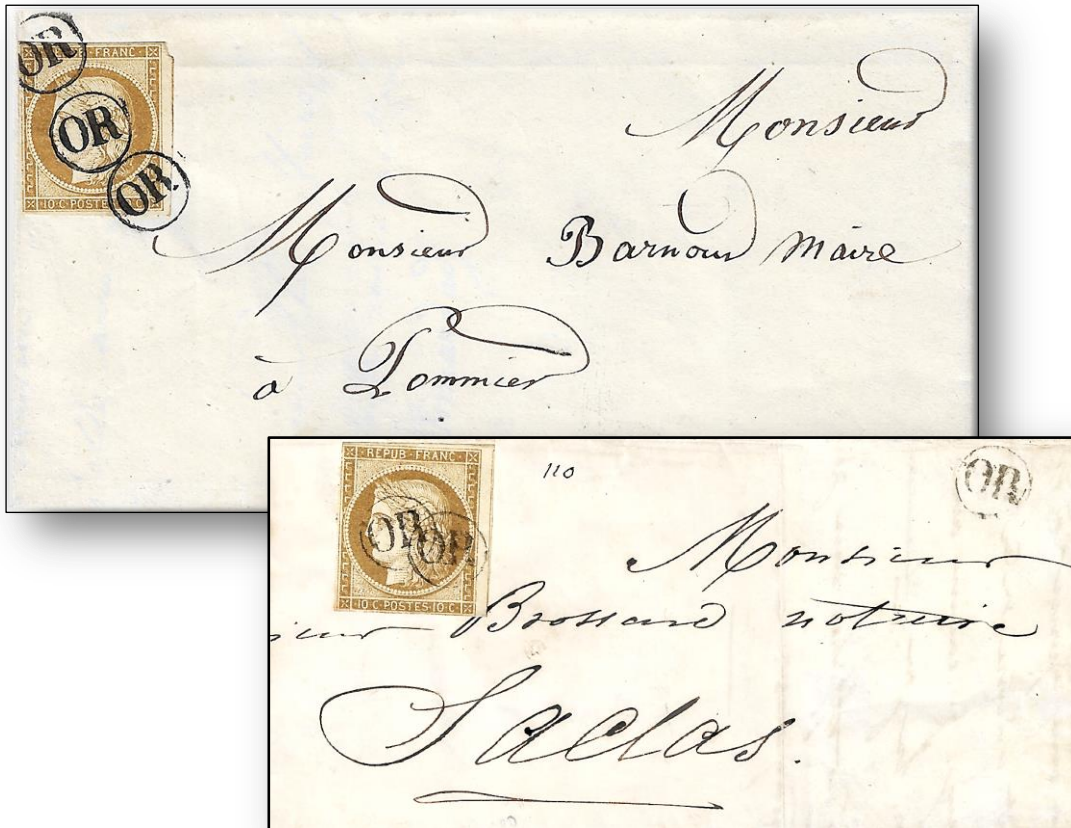 OR
REPUB·FRANC·
OR
OR
·10·C·POSTES·10·C·
Monsieur
Monsieur Barnoud Maire
à Pommier
·REPUB·FRANC·
OR
OR
·10·C·POSTES·10·C·
110
OR
Monsieur
sieur Brossard notaire
Saclas.